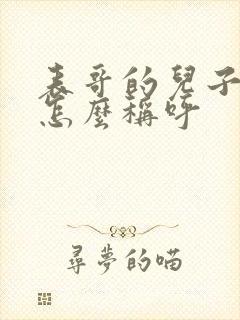 表哥的兒子
怎麼稱呼
尋夢的喵